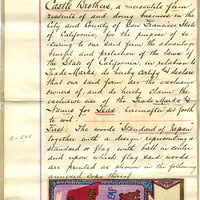 Castle Brothers, a mercantile firm
residents of and doing business in the
City and County of San Francisco State
of California, for the purpose of se-
curing to our said firm the advantage
benefit and protection of the laws of
the State of California, in relation to
Trade Marks, do hereby certify & declare
that our said firm are the exclusive
owners of, and do hereby claim the
exclusive use of the Trade Marks &
Names for Teas hereinafter set forth
to wit:
First. The words Standard of Japan
together with a design representing a
standard or flag with ball in center
and upon which flag said words
are printed as shown in the following
annexed copy thereof